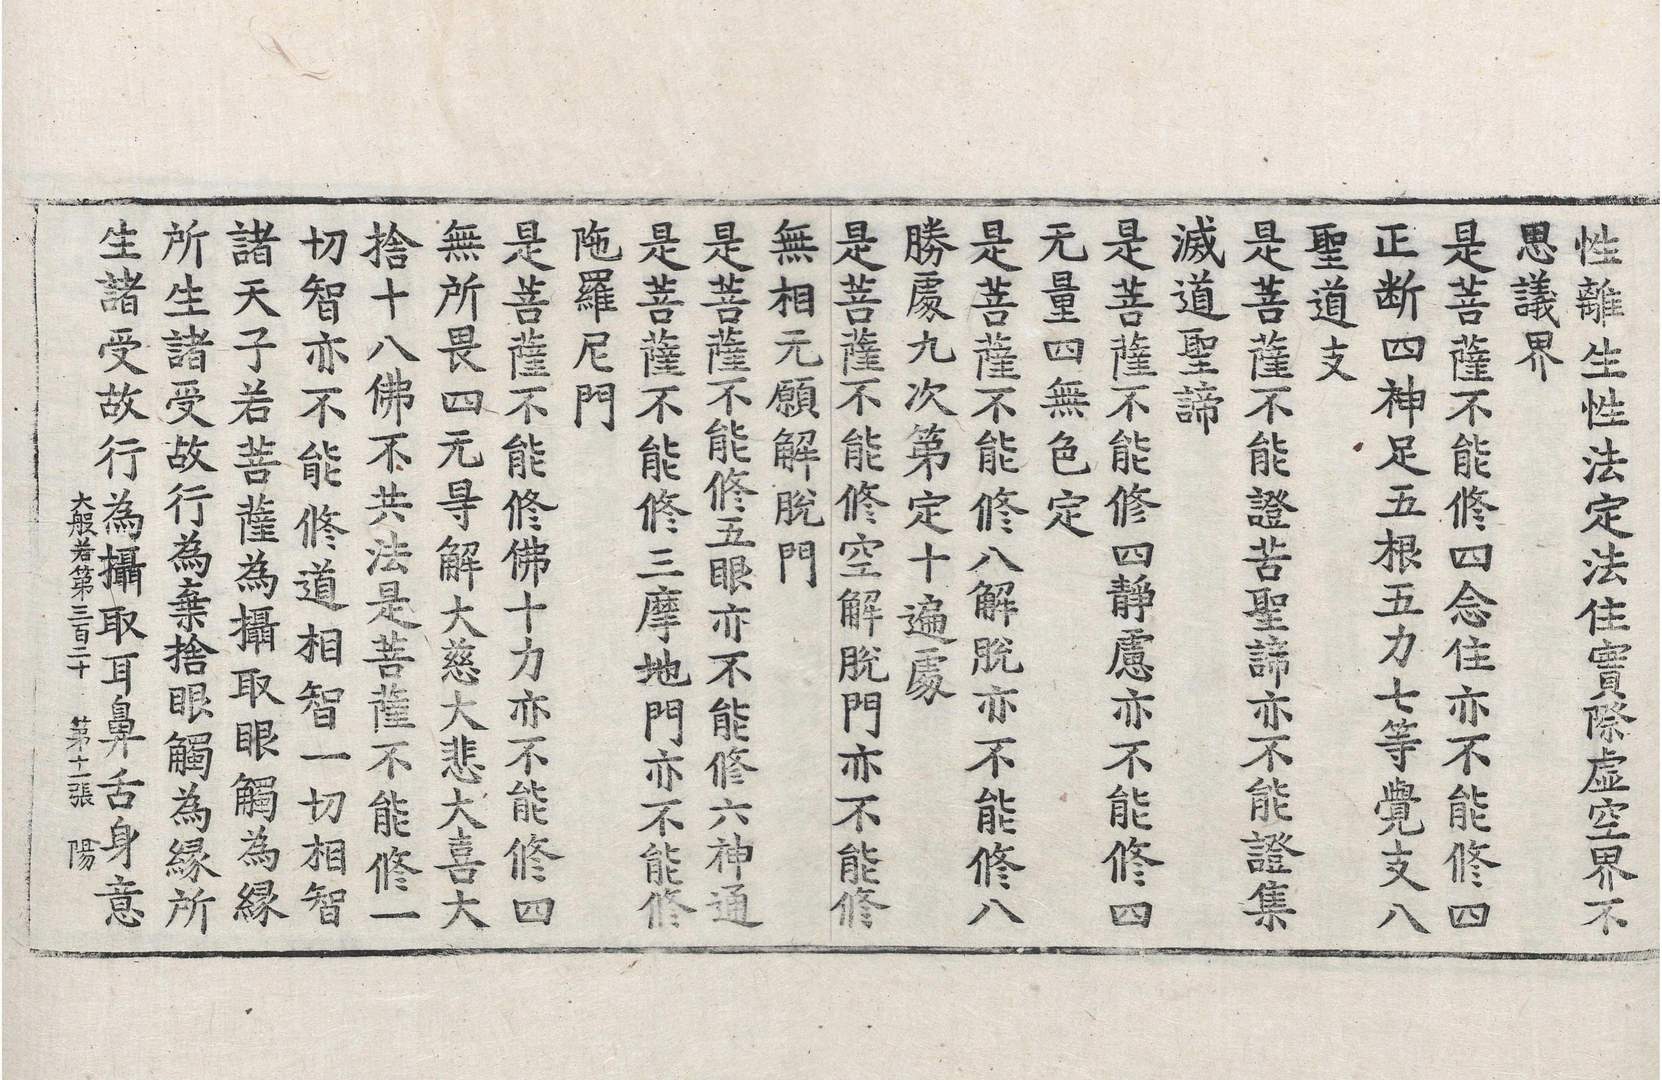 性離生性法定法住實際虛空界不
思議界
是菩薩不能修四念住亦不能修四
正断四神足五根五力七等覺支八
聖道支
是菩薩不能證苦聖諦亦不能證集
滅道聖諦
是菩薩不能修四靜慮亦不能修四
无量四無色定
是菩薩不能修八解脫亦不能修八
勝處九次第定十遍處
是菩薩不能修空解脫門亦不能修
無相无願解脫門
是菩薩不能修五眼亦不能修六神通
是菩薩不能修三摩地門亦不能修
陁羅尼門
是菩薩不能修佛十力亦不能修四
無所畏四无㝵解大慈大悲大喜大
捨十八佛不共法是菩薩不能修一
切智亦不能修道相智一切相智
諸天子若菩薩為攝取眼觸為緣
所生諸受故行為棄捨眼觸為緣所
生諸受故行為攝取耳鼻舌身意
大般若第三百二十 第十二張 陽